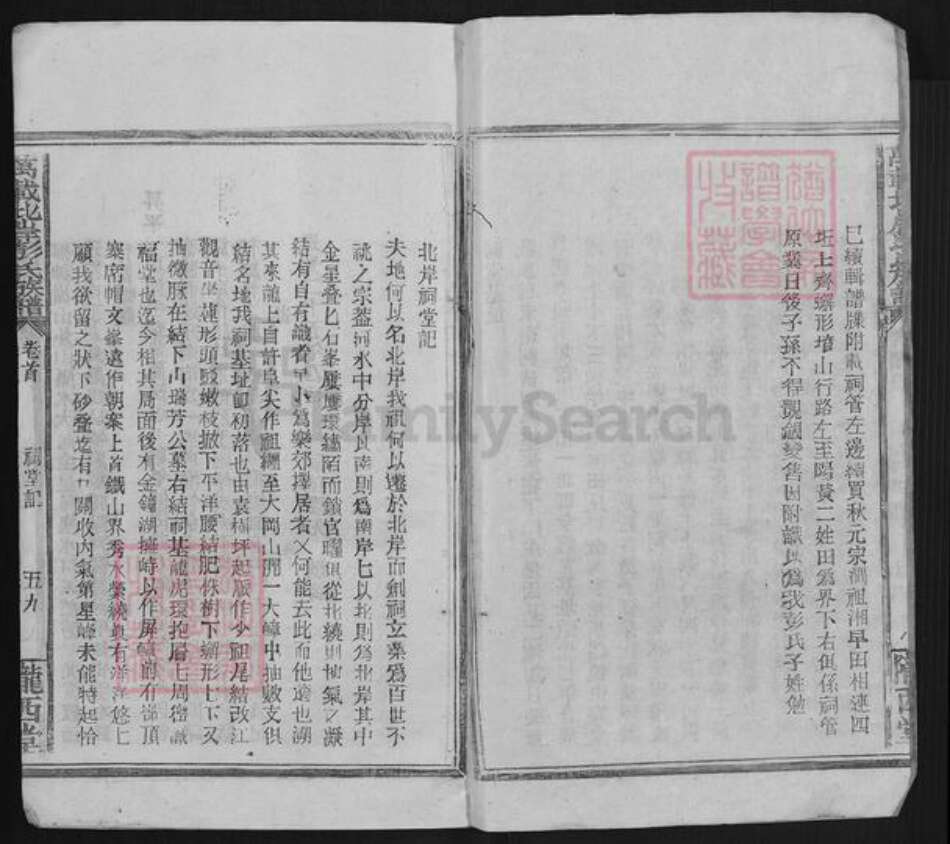 已續輯譜牒附載祠管左邊續買秋元宗潤祖湘早田相連四
坵上齊塝形墇山行路左至陽貲二姓田爲界下右俱係祠管
原業日後子孫不得覬覦變售因附識以爲我彭氏子姓勉
萬載北岸彭氏族譜 卷首 祠堂記 五九 隴西堂
北岸祠堂記
夫地何以名北岸我祖何以遷於北岸而創祠立業爲百世不
祧之宗蓋河水中分岸以南則爲南岸七以北則爲北岸其中
金星叠匕石峯屢屢環繡陌而鎖官曜俱從北繞則地氣之凝
結有自有識者早卜爲樂郊擇居者又何能去此而他適也溯
其來龍上自許阜尖作祖繼至大岡山開一大嶂中抽數支俱
結名地我祠基址卽初落也由袁樹坪起脈作少祖尾結改江
觀音坐蓮形頭股嫩枝撤下平洋腰結肥株樹下塝形上下又
抽微脈在結下山瑞芳公墓右結祠基龍虎環抱層七周密誠
福堂也迄今相其局面後有金鐘湖擁峙以作屏幛前有梯頂
寨席帽文峯遠作朝案上首鐵山界秀水縈繞眞有洋洋悠匕
顧我欲留之狀下砂叠迄有
關收內氣第星峰未能特起恰
FamilySearch
譜學會
收藏